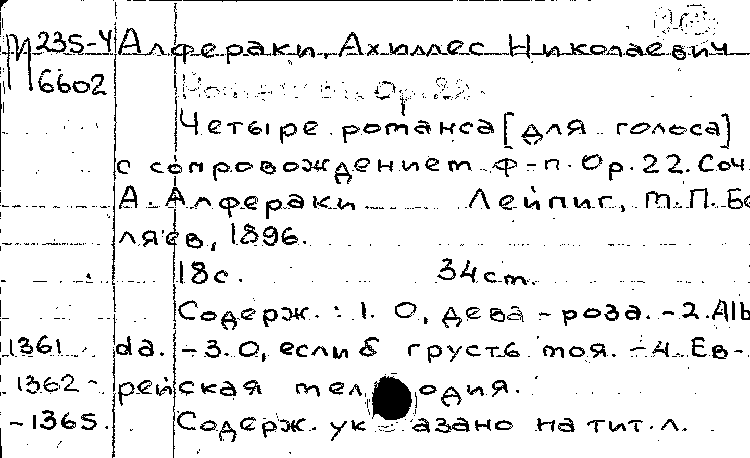 М 235-4 Алфераки, Ахиллес Николаевич
6602 Романсы. Ор. 22.
Четыре романса [для голоса]
с сопровождением ф-п. Ор. 22. Соч.
А. Алфераки Лейпциг, М.П. Бе
ляев, 1896.
18 с. 34 см.
Содерж.: 1. О, дева-роза. - 2. Alb
1361 da. - 3. О, если б грусть моя. - 4. Ев-
1362- рейская мелодия.
-1365. Содерж. указано на тит. л.